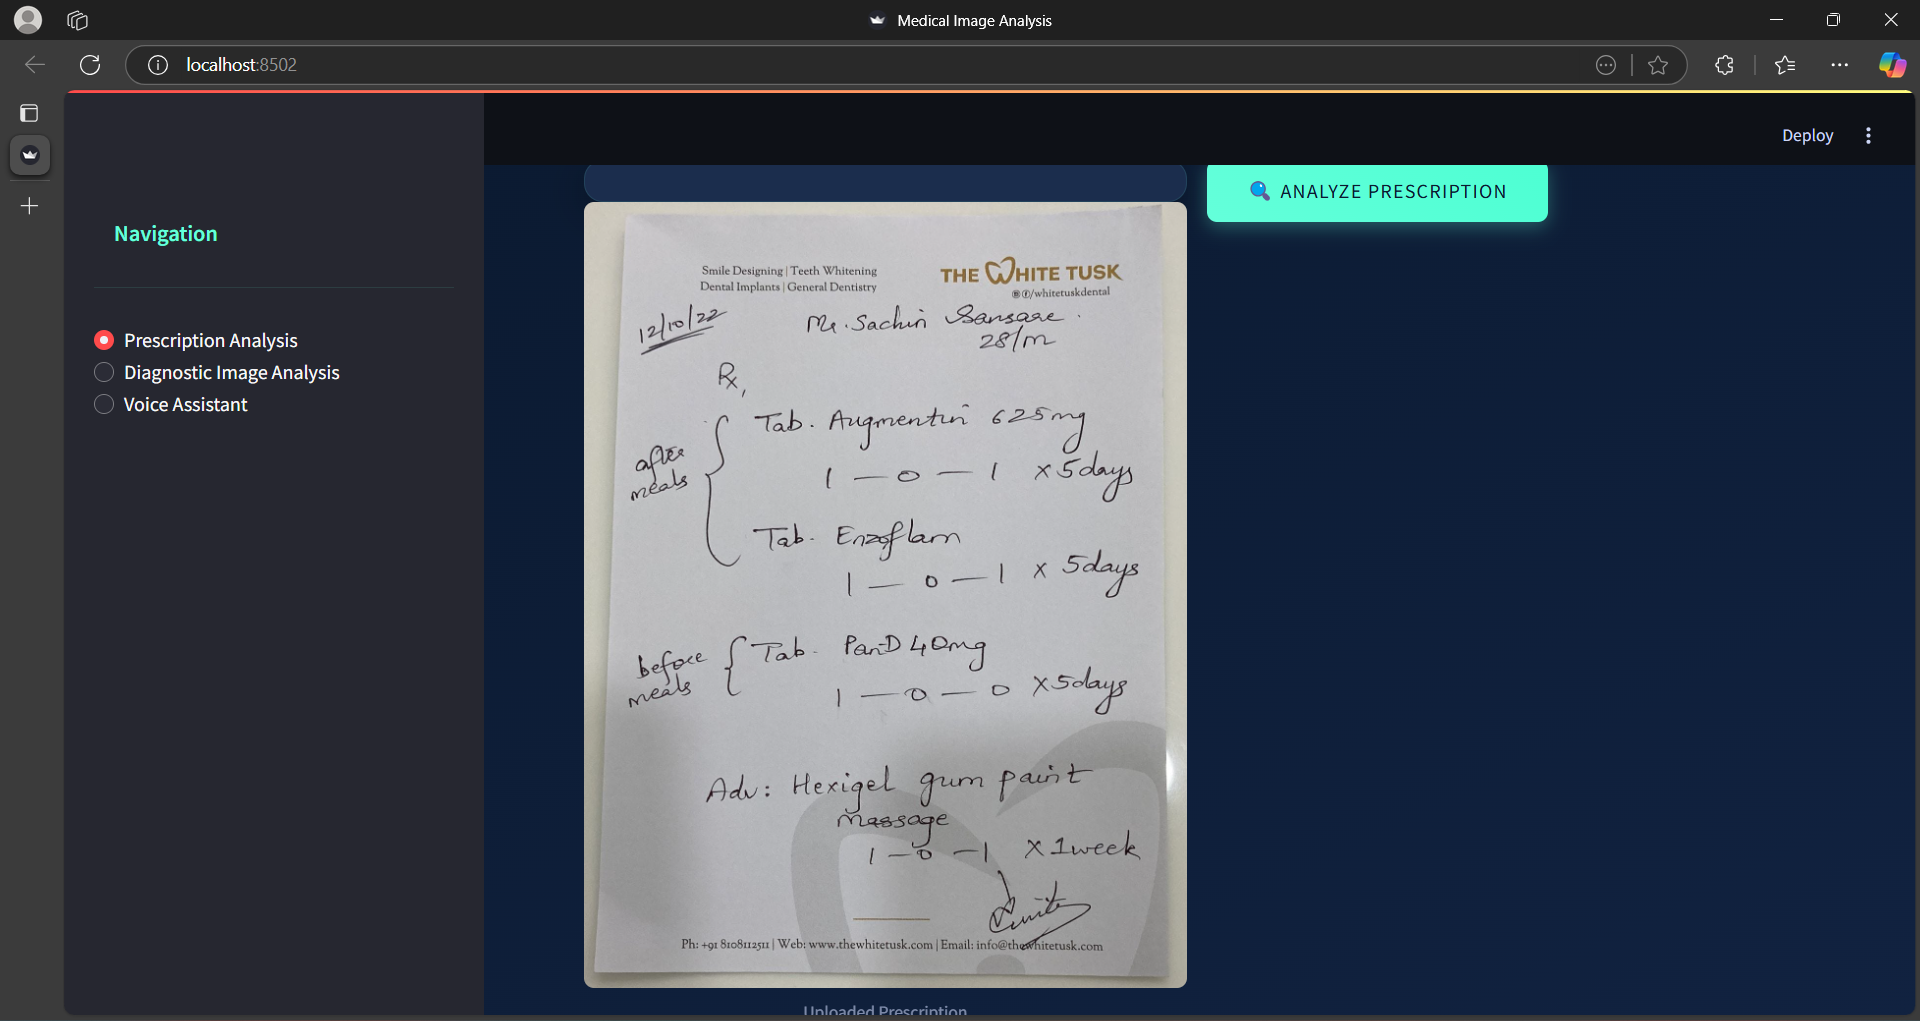 Medical Image Analysis
localhost:8502
Deploy
Navigation
Prescription Analysis
Diagnostic Image Analysis
Voice Assistant
🔍 ANALYZE PRESCRIPTION
Smile Designing | Teeth Whitening
Dental Implants | General Dentistry
THE WHITE TUSK
/whitetuskdental
12/10/22
Mr. Sachin Sansare.
28/m
Rx,
after
meals
Tab. Augmentin 625mg
1 — 0 — 1 x 5 days
Tab. Enzoflam
1 — 0 — 1 x 5 days
before
meals
Tab. Pan-D 40mg
1 — 0 — 0 x 5 days
Adv: Hexigel gum paint
massage
1 — 0 — 1 x 1 week
Ph: +91 8108112511 | Web: www.thewhitetusk.com | Email: info@thewhitetusk.com
Uploaded Prescription